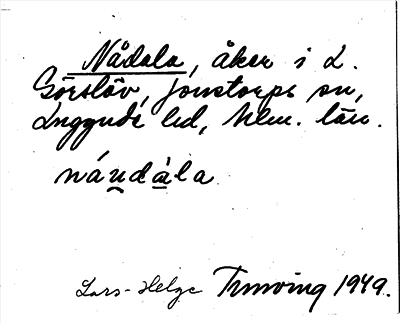 Nådala, åker i L.
Görslöv, Jonstorps sn,
Luggude hd, Mlm. län.
náu̯dàla
Lars-Helge Trulving 1949.